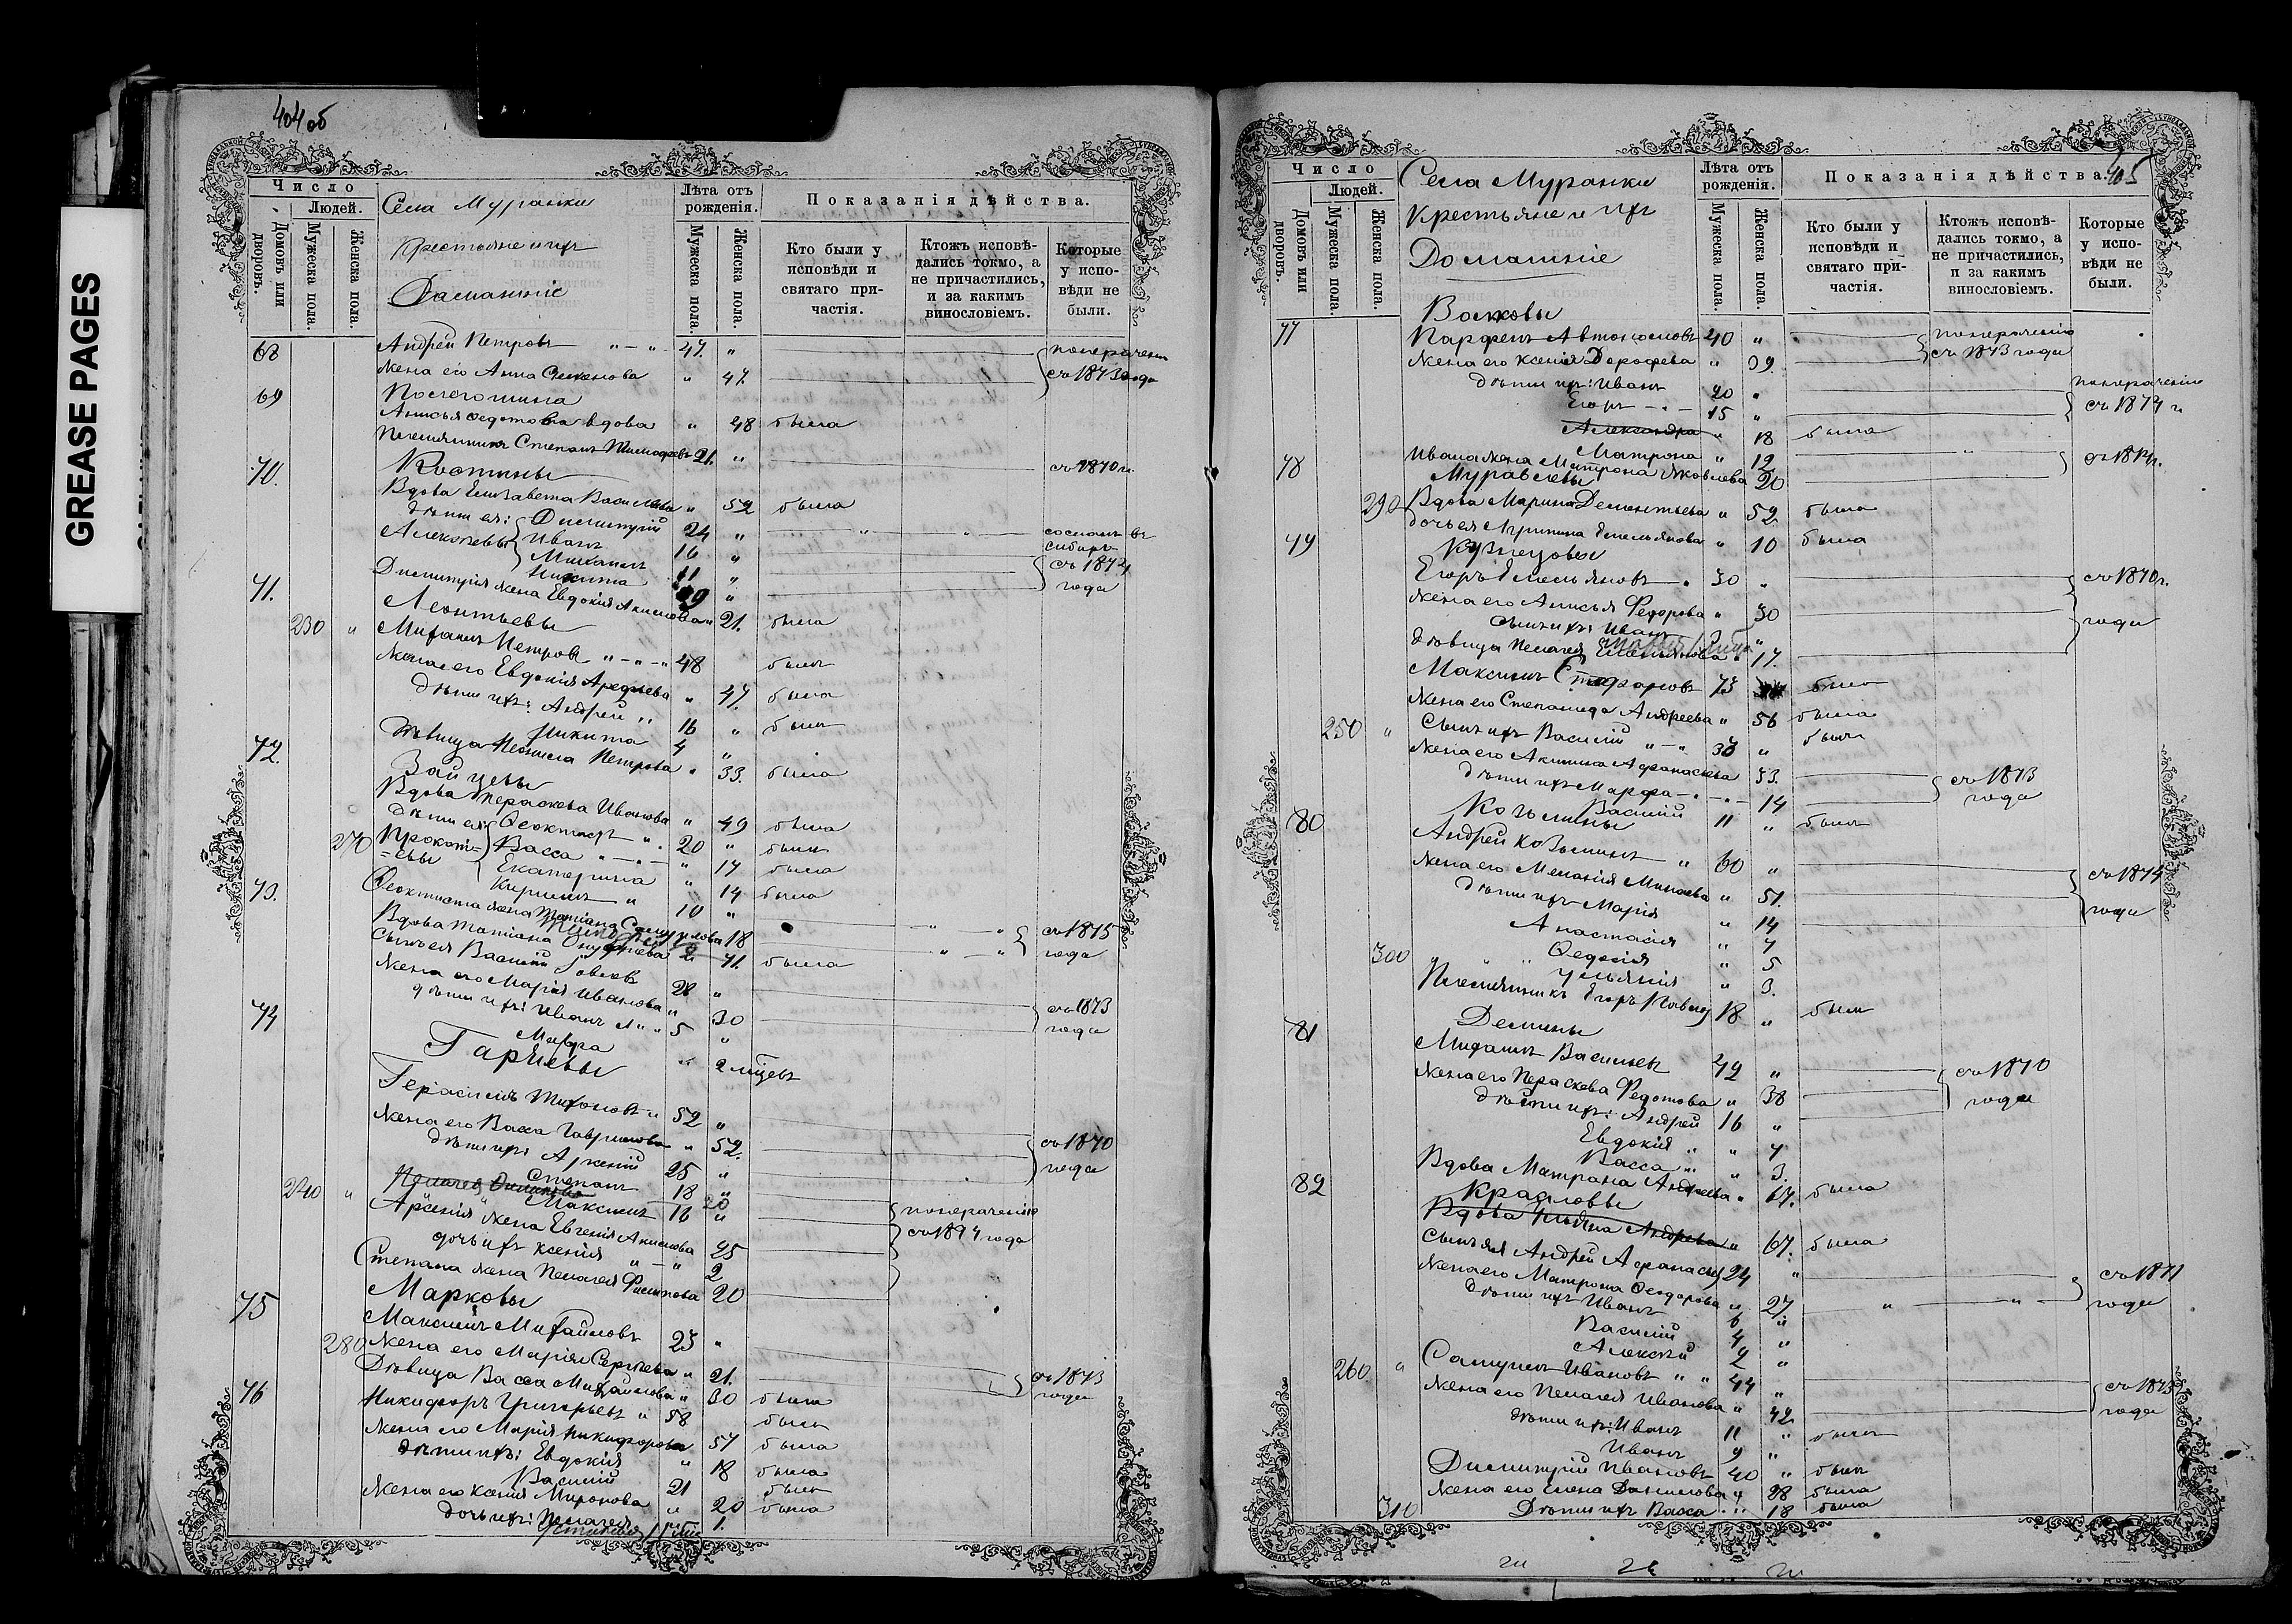 GREASE PAGES
404 об
Число
Людей.
Домовъ или дворовъ.
Мужеска пола.
Женска пола.
Села Муранки
Крестьяне и ихъ
Домашніе
Лѣта отъ рожденія.
Мужеска пола.
Женска пола.
Показанія дѣйства.
Кто были у исповѣди и святаго причастія.
Ктожъ исповѣдались токмо, а не причастились, и за какимъ винословіемъ.
Которые у исповѣди не были.
68 Андрей Петровъ 47
Жена его Анна Семенова 47 съ 1873 года
69
Анисья Федотова вдова 48 была
Племянникъ Степанъ Тимофеевъ 21 съ 1870 г.
70. Костины
Вдова Елизавета Васильева 52 была
дѣти ея: Димитрій 24 сосланъ въ сибирь
Иванъ 16
Михаилъ 11 съ 1874 года
Никита 9
Димитрія жена Евдокія Акимова 21. была
71. Леонтьевы
230 Михаилъ Петровъ 48 былъ
Жена его Евдокія Арефьева 47 была
дѣти ихъ: Андрей 16 былъ
Никита 4
Дѣвица Петрова 33. была
72. Зайцевы
Вдова Параскева Иванова 49 была
дѣти ея: Феоктистъ 20 былъ
270 Васса 17 была
Екатерина 14 была
Кирилъ 10
Феоктиста жена Татіана 18 съ 1875 года
73.
Вдова Татіана 71. была
сынъ ея Василій 28
Жена его Марія Иванова 30 съ 1873 года
дѣти ихъ: Иванъ 5
Мавра 2
74 Гарѣевы
Герасимъ Тихоновъ 52
Жена его Васса Гаврилова 52. съ 1870 года
дѣти ихъ: Арсеній 25
Степанъ 18
240 Максимъ 16
Арсенія жена Евгенія Акимова 25 съ 1874 года
дочь ихъ Ксенія 2
Степана жена Пелагея Филипова 20
75 Марковы
Максимъ Михайловъ 23
280 Жена его Марія Сергѣева 21. съ 1873 года
Дѣвица Васса Михайлова 30 была
76 Никифоръ Григорьевъ 58 былъ
Жена его Марія Никифорова 57 была
дѣти ихъ: Евдокія 18 была
Василій 21 былъ
Жена его Ксенія Миронова 20 была
дочь ихъ: Пелагея 1.
405
Число
Людей.
Домовъ или дворовъ.
Мужеска пола.
Женска пола.
Села Муранки
Крестьяне и ихъ
Домашніе
Лѣта отъ рожденія.
Мужеска пола.
Женска пола.
Показанія дѣйства.
Кто были у исповѣди и святаго причастія.
Ктожъ исповѣдались токмо, а не причастились, и за какимъ винословіемъ.
Которые у исповѣди не были.
77 Волковы
Парфенъ Автономовъ 40
Жена его Ксенія Дорофеева 39 съ 1873 года
дѣти ихъ: Иванъ 20
Егоръ 15 съ 1874 г.
Александра 18 была
Матрона 12
Ивана жена Матрона Яковлева 20
78 Муравлевы
290 Вдова Марина Дементьева 52 была
дочь ея Емельянова 10 была
79 Кузнецовы
Егоръ Емельяновъ 30 съ 1870 г.
Жена его Анисья Федорова 30
сынъ ихъ: Иванъ
дѣвица Пелагея Емельянова 17
Максимъ Стафановъ 73 былъ
Жена его Степанида Андреева 56 была
250 Сынъ ихъ Василій былъ
Жена его Акилина Афанасьева 33. съ 1873 года
дѣти ихъ Марфа 14
Василій 11 былъ
80 Козьмины
Андрей Козьминъ 60
Жена его Меланія Минаева 51. съ 1874 года
дѣти ихъ Марія 14
Анастасія 7
300 Федосія 5
Ульянія 3.
Племянникъ Егоръ 18 былъ
81 Демины
Михаилъ Васильевъ 42
Жена его Параскева Федотова 38 съ 1870 года
дѣти ихъ: Андрей 16
Евдокія 7
Васса 3.
Вдова Матрона Андреева 67. была
82 Красновы
Вдова Ульяна Андреева 67. была
Сынъ ея Андрей Афанасьевъ 24
Жена его Матрона Феодорова 27 съ 1871 года
дѣти ихъ Иванъ 6
Василій 4
Алексѣй 2
260 Самуилъ Ивановъ 44
Жена его Пелагея Иванова 42 съ 1873 года
дѣти ихъ: Иванъ 11 былъ
Иванъ 9
Димитрій Ивановъ 40 былъ
Жена его Елена Данилова 38 была
310 Дѣти ихъ Васса 18 была